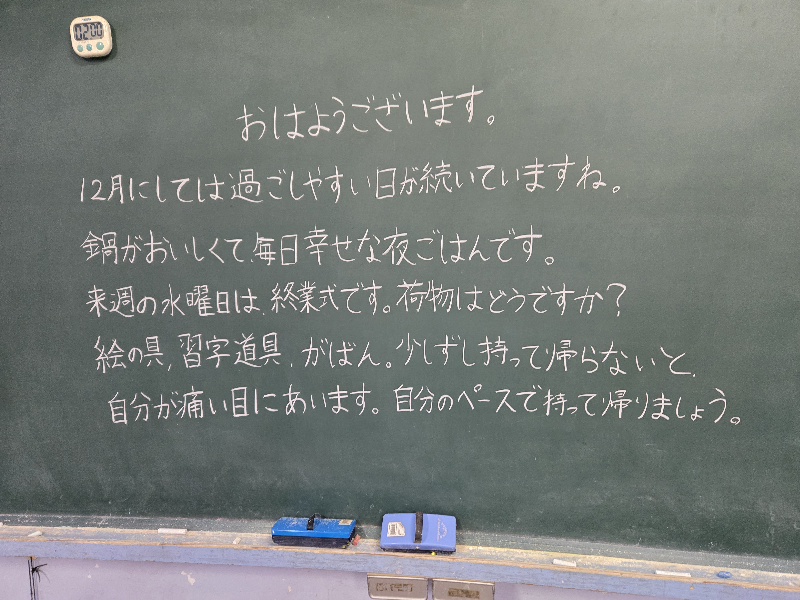 おはようございます。
12月にしては過ごしやすい日が続いていますね。
鍋がおいしくて、毎日幸せな夜ごはんです。
来週の水曜日は、終業式です。荷物はどうですか？
絵の具、習字道具、がばん。少しずし持って帰らないと、
自分が痛い目にあいます。自分のペースで持って帰りましょう。